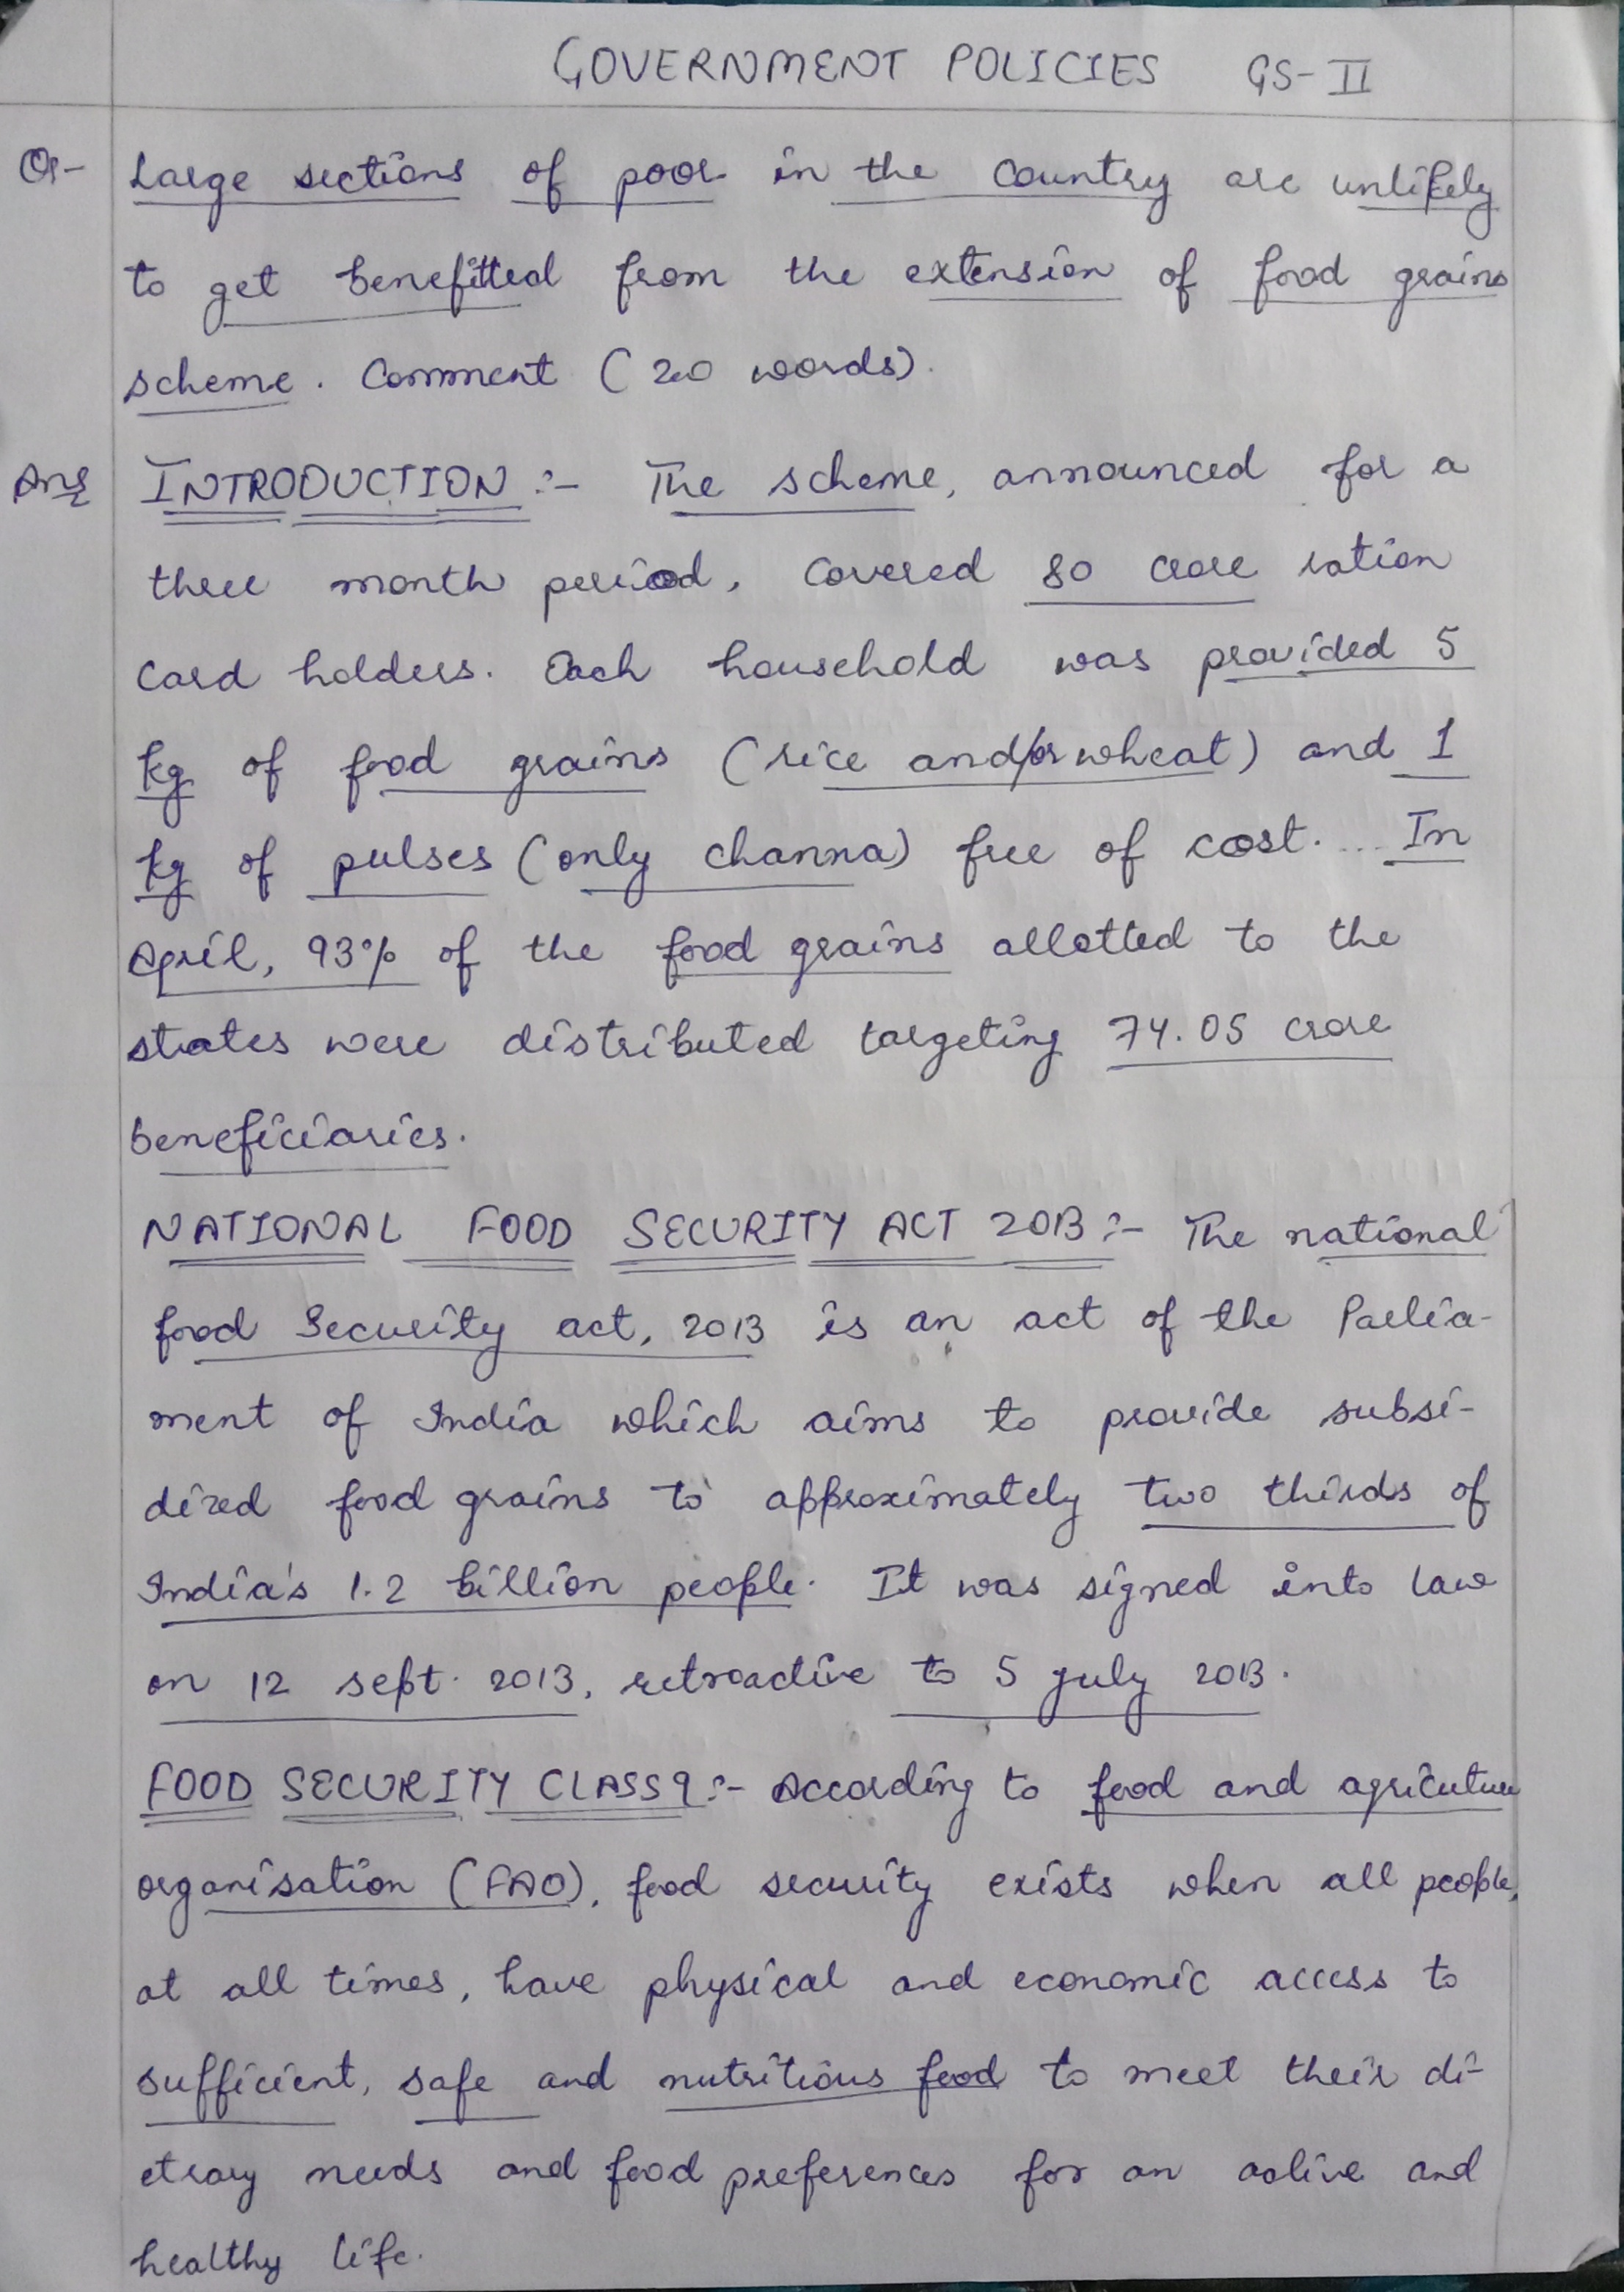 GOVERNMENT POLICIES GS-II
Q- Large sections of poor in the country are unlikely
to get benefitted from the extension of food grains
scheme. Comment (200 words).
Ans INTRODUCTION :- The scheme, announced for a
three month period, covered 80 crore ration
card holders. Each household was provided 5
kg of food grains (rice and/or wheat) and 1
kg of pulses (only channa) free of cost. ... In
April, 93% of the food grains allotted to the
states were distributed targeting 74.05 crore
beneficiaries.
NATIONAL FOOD SECURITY ACT 2013 :- The national
food Security act, 2013 is an act of the Parlia-
ment of India which aims to provide subsi-
dized food grains to approximately two thirds of
India's 1.2 billion people. It was signed into law
on 12 sept. 2013, retroactive to 5 july 2013.
FOOD SECURITY CLASS 9 :- According to food and agricuture
organisation (FAO), food security exists when all people,
at all times, have physical and economic access to
sufficient, safe and nutritious food to meet their di-
etray needs and food preferences for an active and
healthy life.